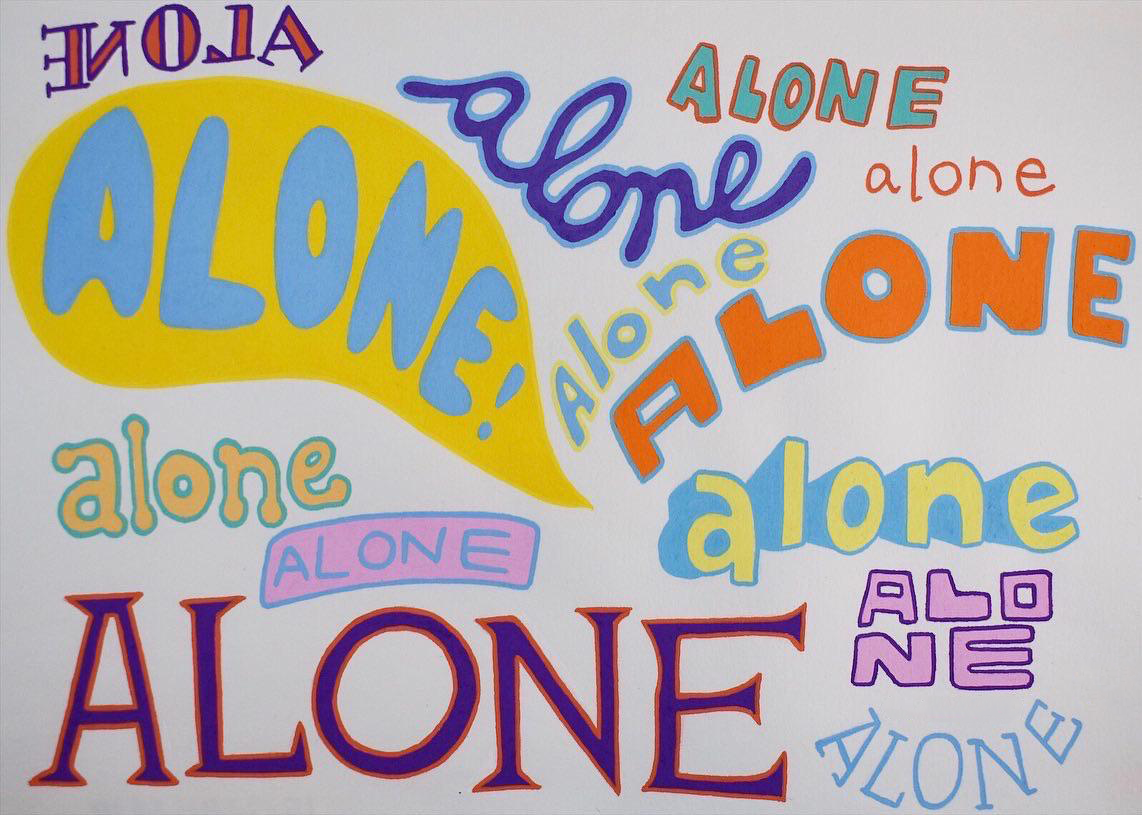 ALONE
ALONE!
alone
ALONE
alone
Alone
ALONE
alone
ALONE
alone
ALO
NE
ALONE
ALONE